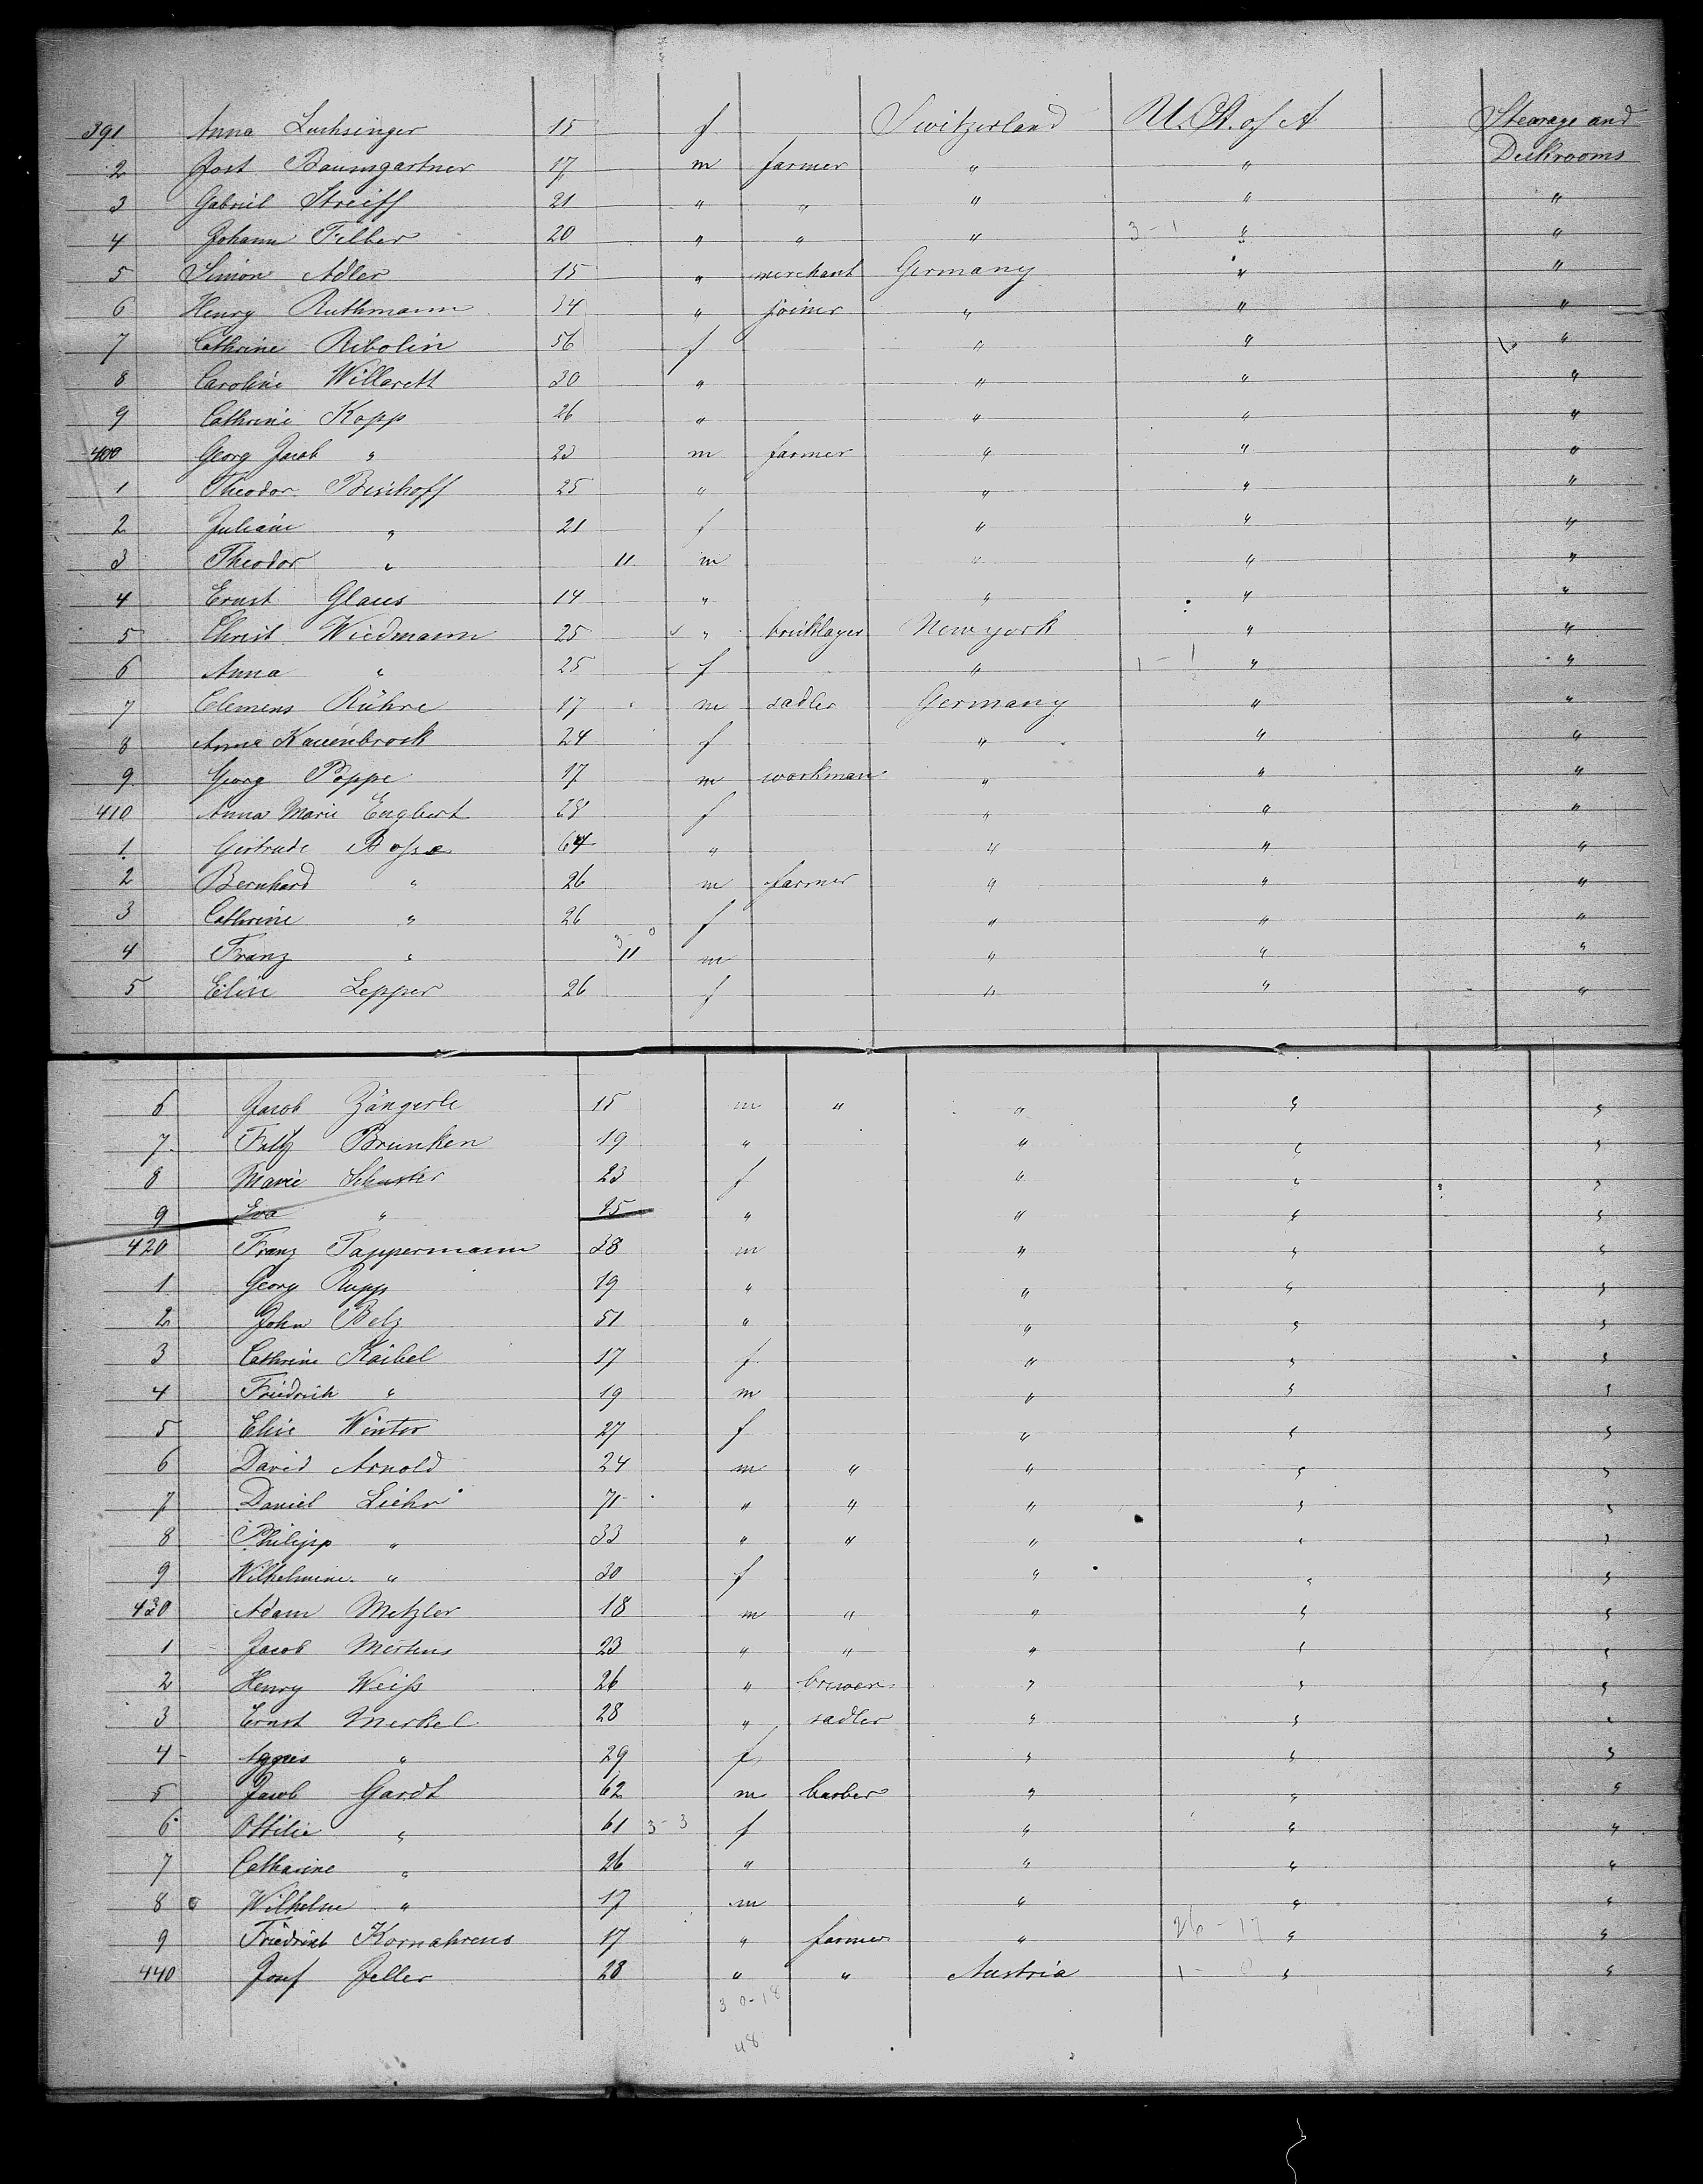 391 Anna Luchsinger 15 f Switzerland U. St. of A Stearage and
2 Jost Baumgartner 17 m farmer " " Deckrooms
3 Gabriel Streiff 21 " " " " "
4 Johann Filber 20 " " " 3-1 " "
5 Simon Adler 15 " merchant Germany " "
6 Henry Ruthmann 34 " joiner " " "
7 Cathrine Ribolin 56 f " " "
8 Caroline Willarett 30 " " " "
9 Cathrine Kopp 26 " " " "
400 Georg Jacob " 23 m farmer " " "
1 Theodor Bischoff 25 " " " "
2 Juliane " 21 f " " "
3 Theodor " 11 m " " "
4 Ernst Glaus 14 " " " "
5 Christ Wiedmann 25 " bricklayer New york " "
6 Anna " 25 f " 1-1 " "
7 Clemens Rühre 17 m sadler Germany " "
8 Anna Kauenbrock 24 f " " "
9 Georg Poppe 17 m workman " " "
410 Anna Marie Engbert 28 f " " "
1 Gertrude Bosse 64 " " " "
2 Bernhard " 26 m farmer " " "
3 Cathrine " 26 f " " "
4 Franz " 3-0 11 m " " "
5 Elise Lepper 26 f " " "
6 Jacob Zängerle 15 m " " " "
7 Fritz Brunken 19 " " " "
8 Marie Schuster 23 f " " "
9 Eva " 15 " " " "
420 Franz Tappermann 38 m " " "
1 Georg Rupp 19 " " " "
2 John Belz 51 " " " "
3 Cathrine Kaibel 17 f " " "
4 Friedrich " 19 m " " "
5 Elise Winter 27 f " " "
6 David Arnold 24 m " " " "
7 Daniel Liehr 71 " " " " "
8 Philipp " 33 " " " " "
9 Wilhelmine " 30 f " " "
430 Adam Metzler 18 m " " " "
1 Jacob Mertens 23 " " " " "
2 Henry Weiss 26 " brewer " " "
3 Ernst Merkel 28 " sadler " " "
4 Agnes " 29 f " " "
5 Jacob Gardt 62 m barber " " "
6 Ottilie " 61 3-3 f " " "
7 Catharine " 26 " " " "
8 Wilhelm " 17 m " " "
9 Friedrich Kornahrens 17 " farmer " 26-17 " "
440 Josef Jeller 28 " " Austria 1-0 " "
30-18
48